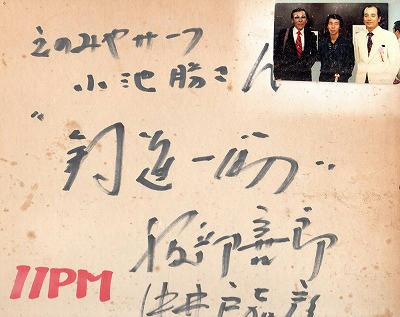 えのみやサーフ
小池勝さん
"釣道一筋"
服部善郎
11PM